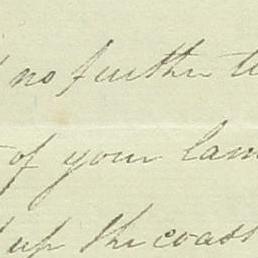 no further t
of your lam
up the coast